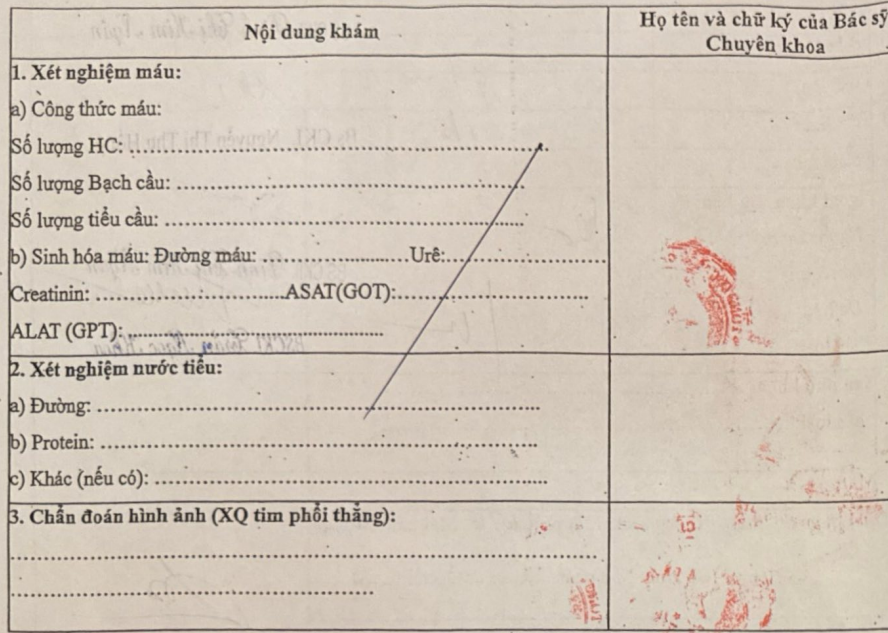 Nội dung khám
Họ tên và chữ ký của Bác sỹ
Chuyên khoa
1. Xét nghiệm máu:
a) Công thức máu:
Số lượng HC: ..............................................................................
Số lượng Bạch cầu: ................................................................
Số lượng tiểu cầu: ..................................................................
b) Sinh hóa máu: Đường máu: ..........................Urê:............................
Creatinin: ...................................ASAT(GOT):...................................
ALAT (GPT): ..............................................
2. Xét nghiệm nước tiểu:
a) Đường: .................................................................................
b) Protein: ................................................................................
c) Khác (nếu có): .......................................................................
3. Chẩn đoán hình ảnh (XQ tim phổi thẳng):
........................................................................................................
.................................................................